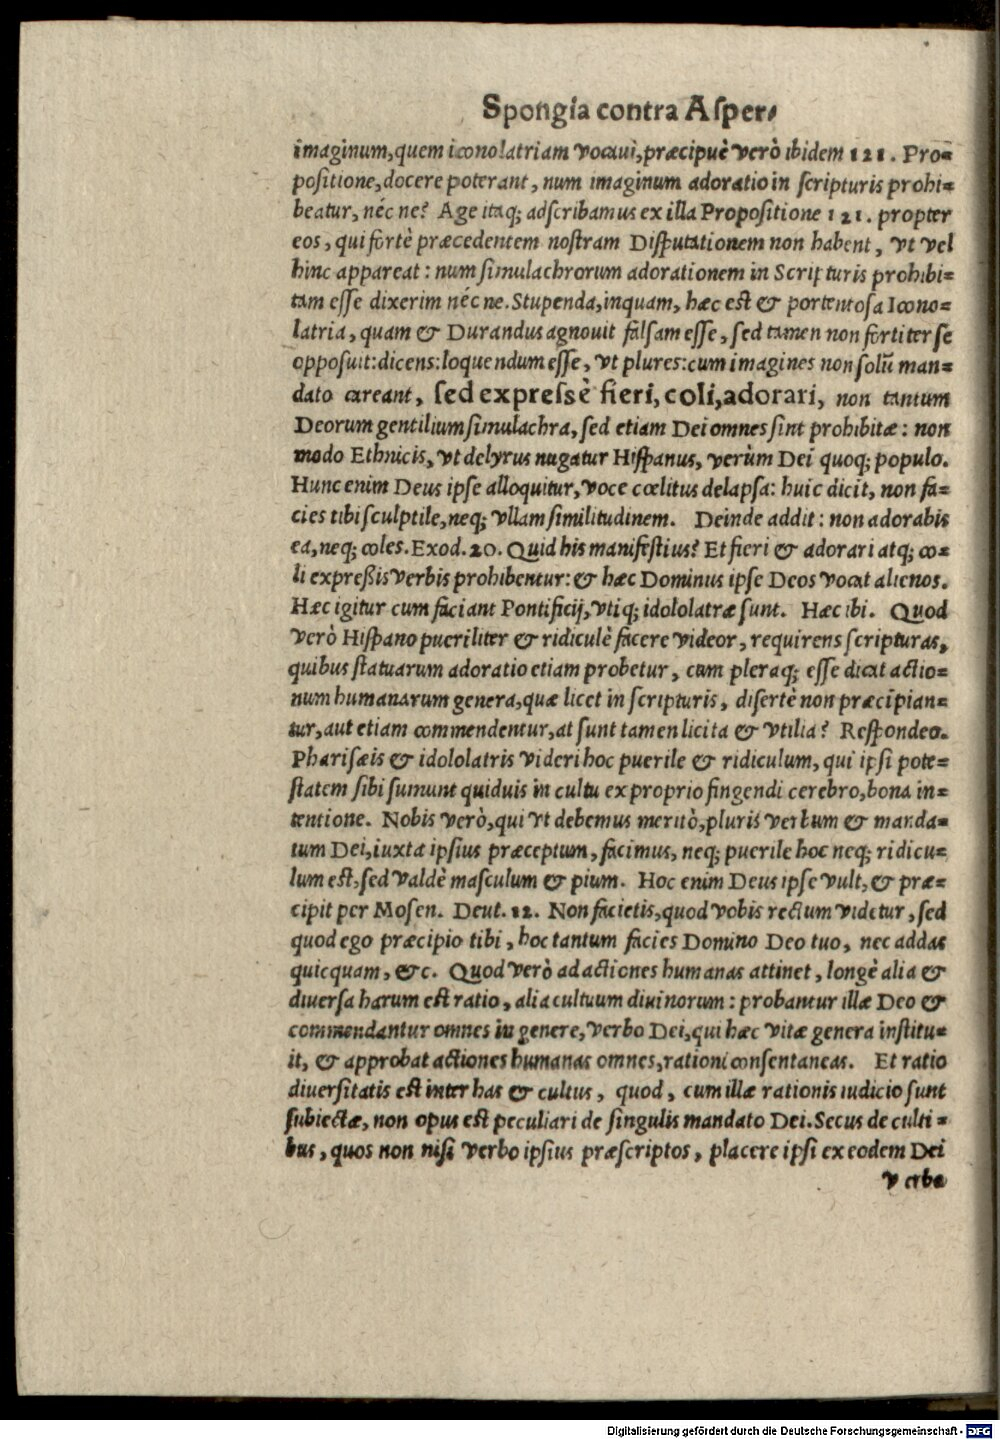 Spongia contra Asper⸗
imaginum, quem iconolatriam vocaui, præcipuè verò ibidem 121. Pro=
positione, docere poterant, num imaginum adoratio in scripturis prohi=
beatur, néc ne? Age itaq; adscribamus ex illa Propositione 121. propter
eos, qui fortè præcedentem nostram Disputationem non habent, vt vel
hinc appareat: num simulachrorum adorationem in Scripturis prohibi=
tam esse dixerim néc ne. Stupenda, inquam, hæc est & portentosa Icono=
latria, quam & Durandus agnouit falsam esse, sed tamen non fortiter se
opposuit: dicens: loquendum esse, vt plures: cum imagines non solũ man=
dato careant, sed expressè fieri, coli, adorari, non tantum
Deorum gentilium simulachra, sed etiam Dei omnes sint prohibitæ: non
modo Ethnicis, vt delyrus nugatur Hispanus, verùm Dei quoq; populo.
Hunc enim Deus ipse alloquitur, voce cœlitus delapsa: huic dicit, non fa=
cies tibi sculptile, neq; vllam similitudinem. Deinde addit: non adorabis
ea, neq; coles. Exod. 20. Quid his manifestius? Et fieri & adorari atq; co=
li expreßis verbis prohibentur: & hæc Dominus ipse Deos vocat alienos.
Hæc igitur cum faciant Pontificij, vtiq; idololatræ sunt. Hæc ibi. Quod
verò Hispano pueriliter & ridiculè facere videor, requirens scripturas,
quibus statuarum adoratio etiam probetur, cum pleraq; esse dicat actio=
num humanarum genera, quæ licet in scripturis, disertè non præcipian=
tur, aut etiam commendentur, at sunt tamen licita & vtilia? Respondeo.
Pharisæis & idololatris videri hoc puerile & ridiculum, qui ipsi pote=
statem sibi sumunt quiduis in cultu ex proprio fingendi cerebro, bona in=
tentione. Nobis verò, qui vt debemus meritò, pluris verbum & manda=
tum Dei, iuxta ipsius præceptum, facimus, neq; puerile hoc neq; ridicu=
lum est, sed valdè masculum & pium. Hoc enim Deus ipse vult, & præ=
cipit per Mosen. Deut. 12. Non facietis, quod vobis rectum videtur, sed
quod ego præcipio tibi, hoc tantum facies Domino Deo tuo, nec addas
quicquam, &c. Quod verò ad actiones humanas attinet, longè alia &
diuersa harum est ratio, alia cultuum diuinorum: probantur illæ Deo &
commendantur omnes in genere, verbo Dei, qui hæc vitæ genera institu=
it, & approbat actiones humanas omnes, rationi consentaneas. Et ratio
diuersitatis est inter has & cultus, quod, cum illæ rationis iudicio sunt
subiectæ, non opus est peculiari de singulis mandato Dei. Secus de culti=
bus, quos non nisi verbo ipsius præscriptos, placere ipsi ex eodem Dei
verbo
Digitalisierung gefördert durch die Deutsche Forschungsgemeinschaft - DFG